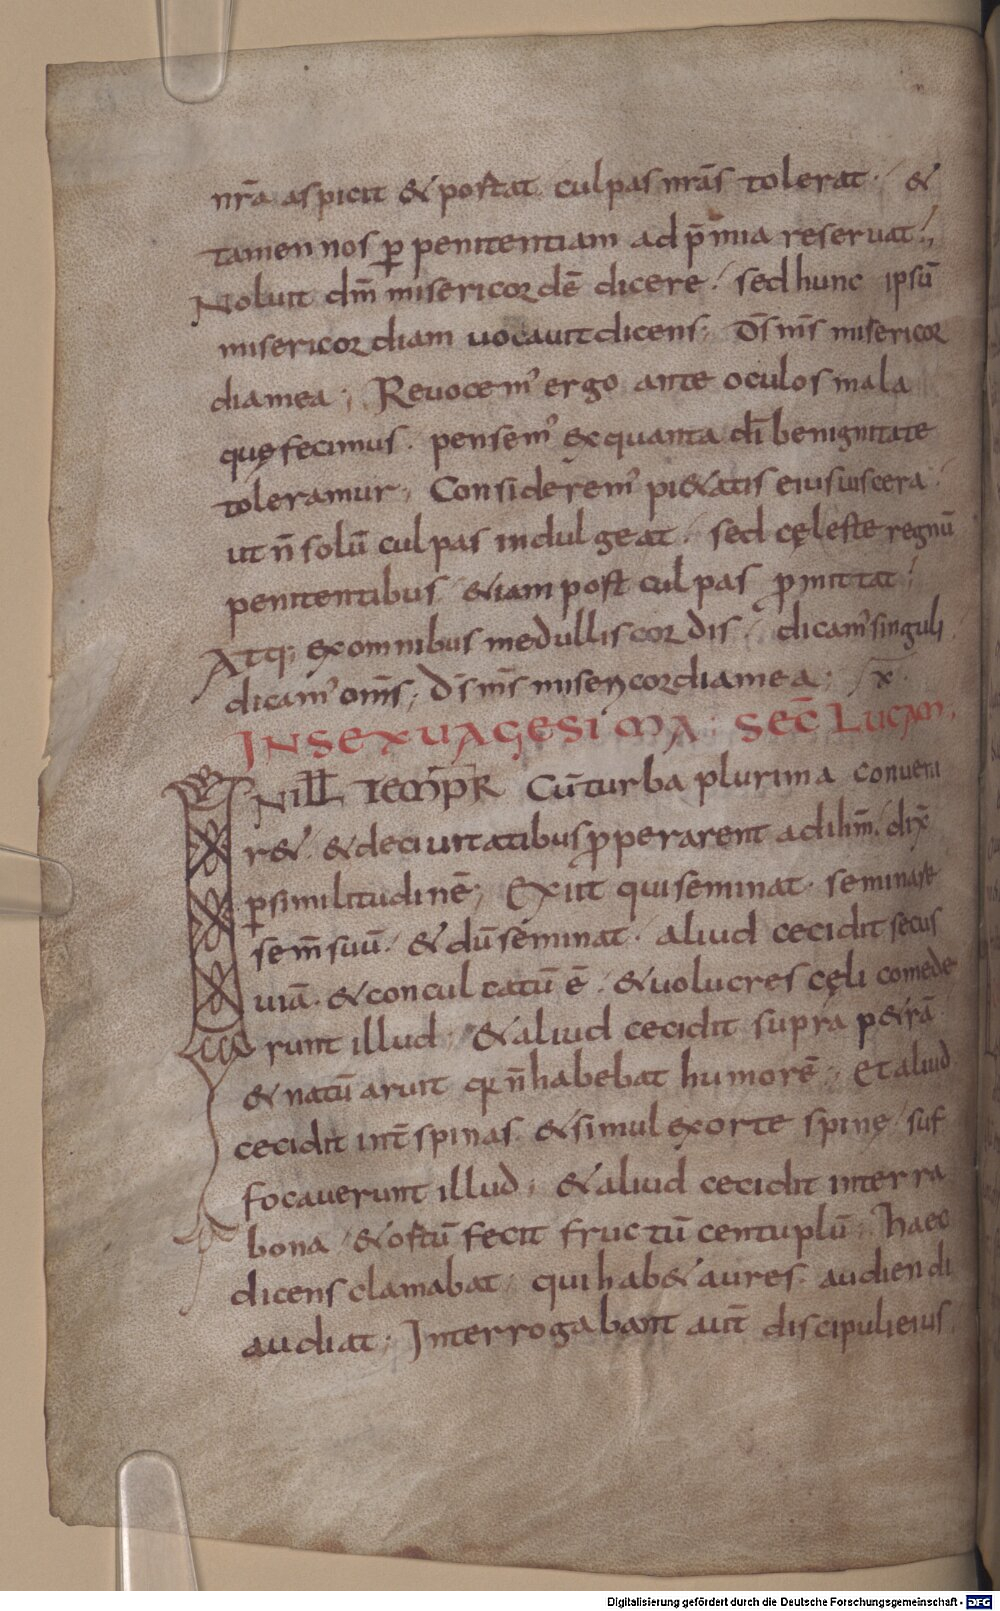 nr̄a aspicit & portat culpas nr̄as tolerat · &
tamen nos ꝑ penitentiam ad p̄mia reseruat ·,
Noluit dn̄m misericordē dicere · sed hunc ipsū
misericordiam uocauit dicens; Ds̄ ms̄ misericor
dia mea; Reuocemꝰ ergo ante oculos mala
quę fecimus · pensemꝰ ex quanta dī benignitate
toleramur; Consideremꝰ pi&atis eius uiscera ·
ut n̄ solū culpas indulgeat · sed cęleste regnū
penitentibus &iam post culpas ꝓmittat ·
Atq; ex omnibus medullis cordis · dicamꝰ singuli
dicamꝰ oms̄; Ds̄ ms̄ misericordia mea; x̄
IN SEXUAGESIMA · SEC̄ LUCAM;
IN ILL TEMPR Cū turba plurima conueni
r& · & de ciuitatibus ꝓperarent ad ihm̄ · dix̄
ꝑ similitudinē; Exiit qui seminat · seminare
sem̄ suū · & dū seminat · aliud cecidit secus
uiā · & conculcatū ē · & uolucres cęli comede
runt illud; & aliud cecidit supra p&rā
& natū aruit qꝛ n̄ habebat humorē; Et aliud
cecidit int̄ spinas · & simul exorte spinę suf
focauerunt illud; & aliud cecidit in terra
bona & ortū fecit fructū centuplū; Haec
dicens clamabat · qui hab& aures · audiendi
audiat; Interrogabant aut̄ discipuli eius
Digitalisierung gefördert durch die Deutsche Forschungsgemeinschaft - DFG